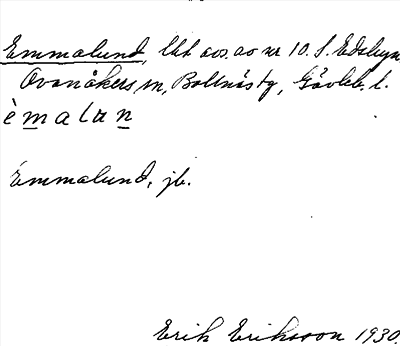 Emmalund, lht avs. av nr 10. S. Edsbyn,
Ovanåkers sn, Bollnäs tg, Gävleb. l.
è m a l u n
Emmalund, jb.
Erik Eriksson 1930.